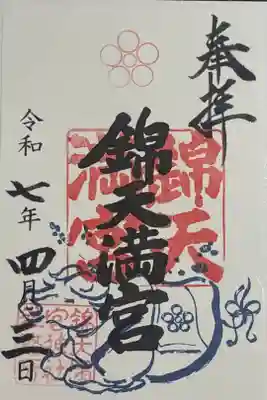 奉拝
錦天満宮
錦天
満宮
令和七年四月三日